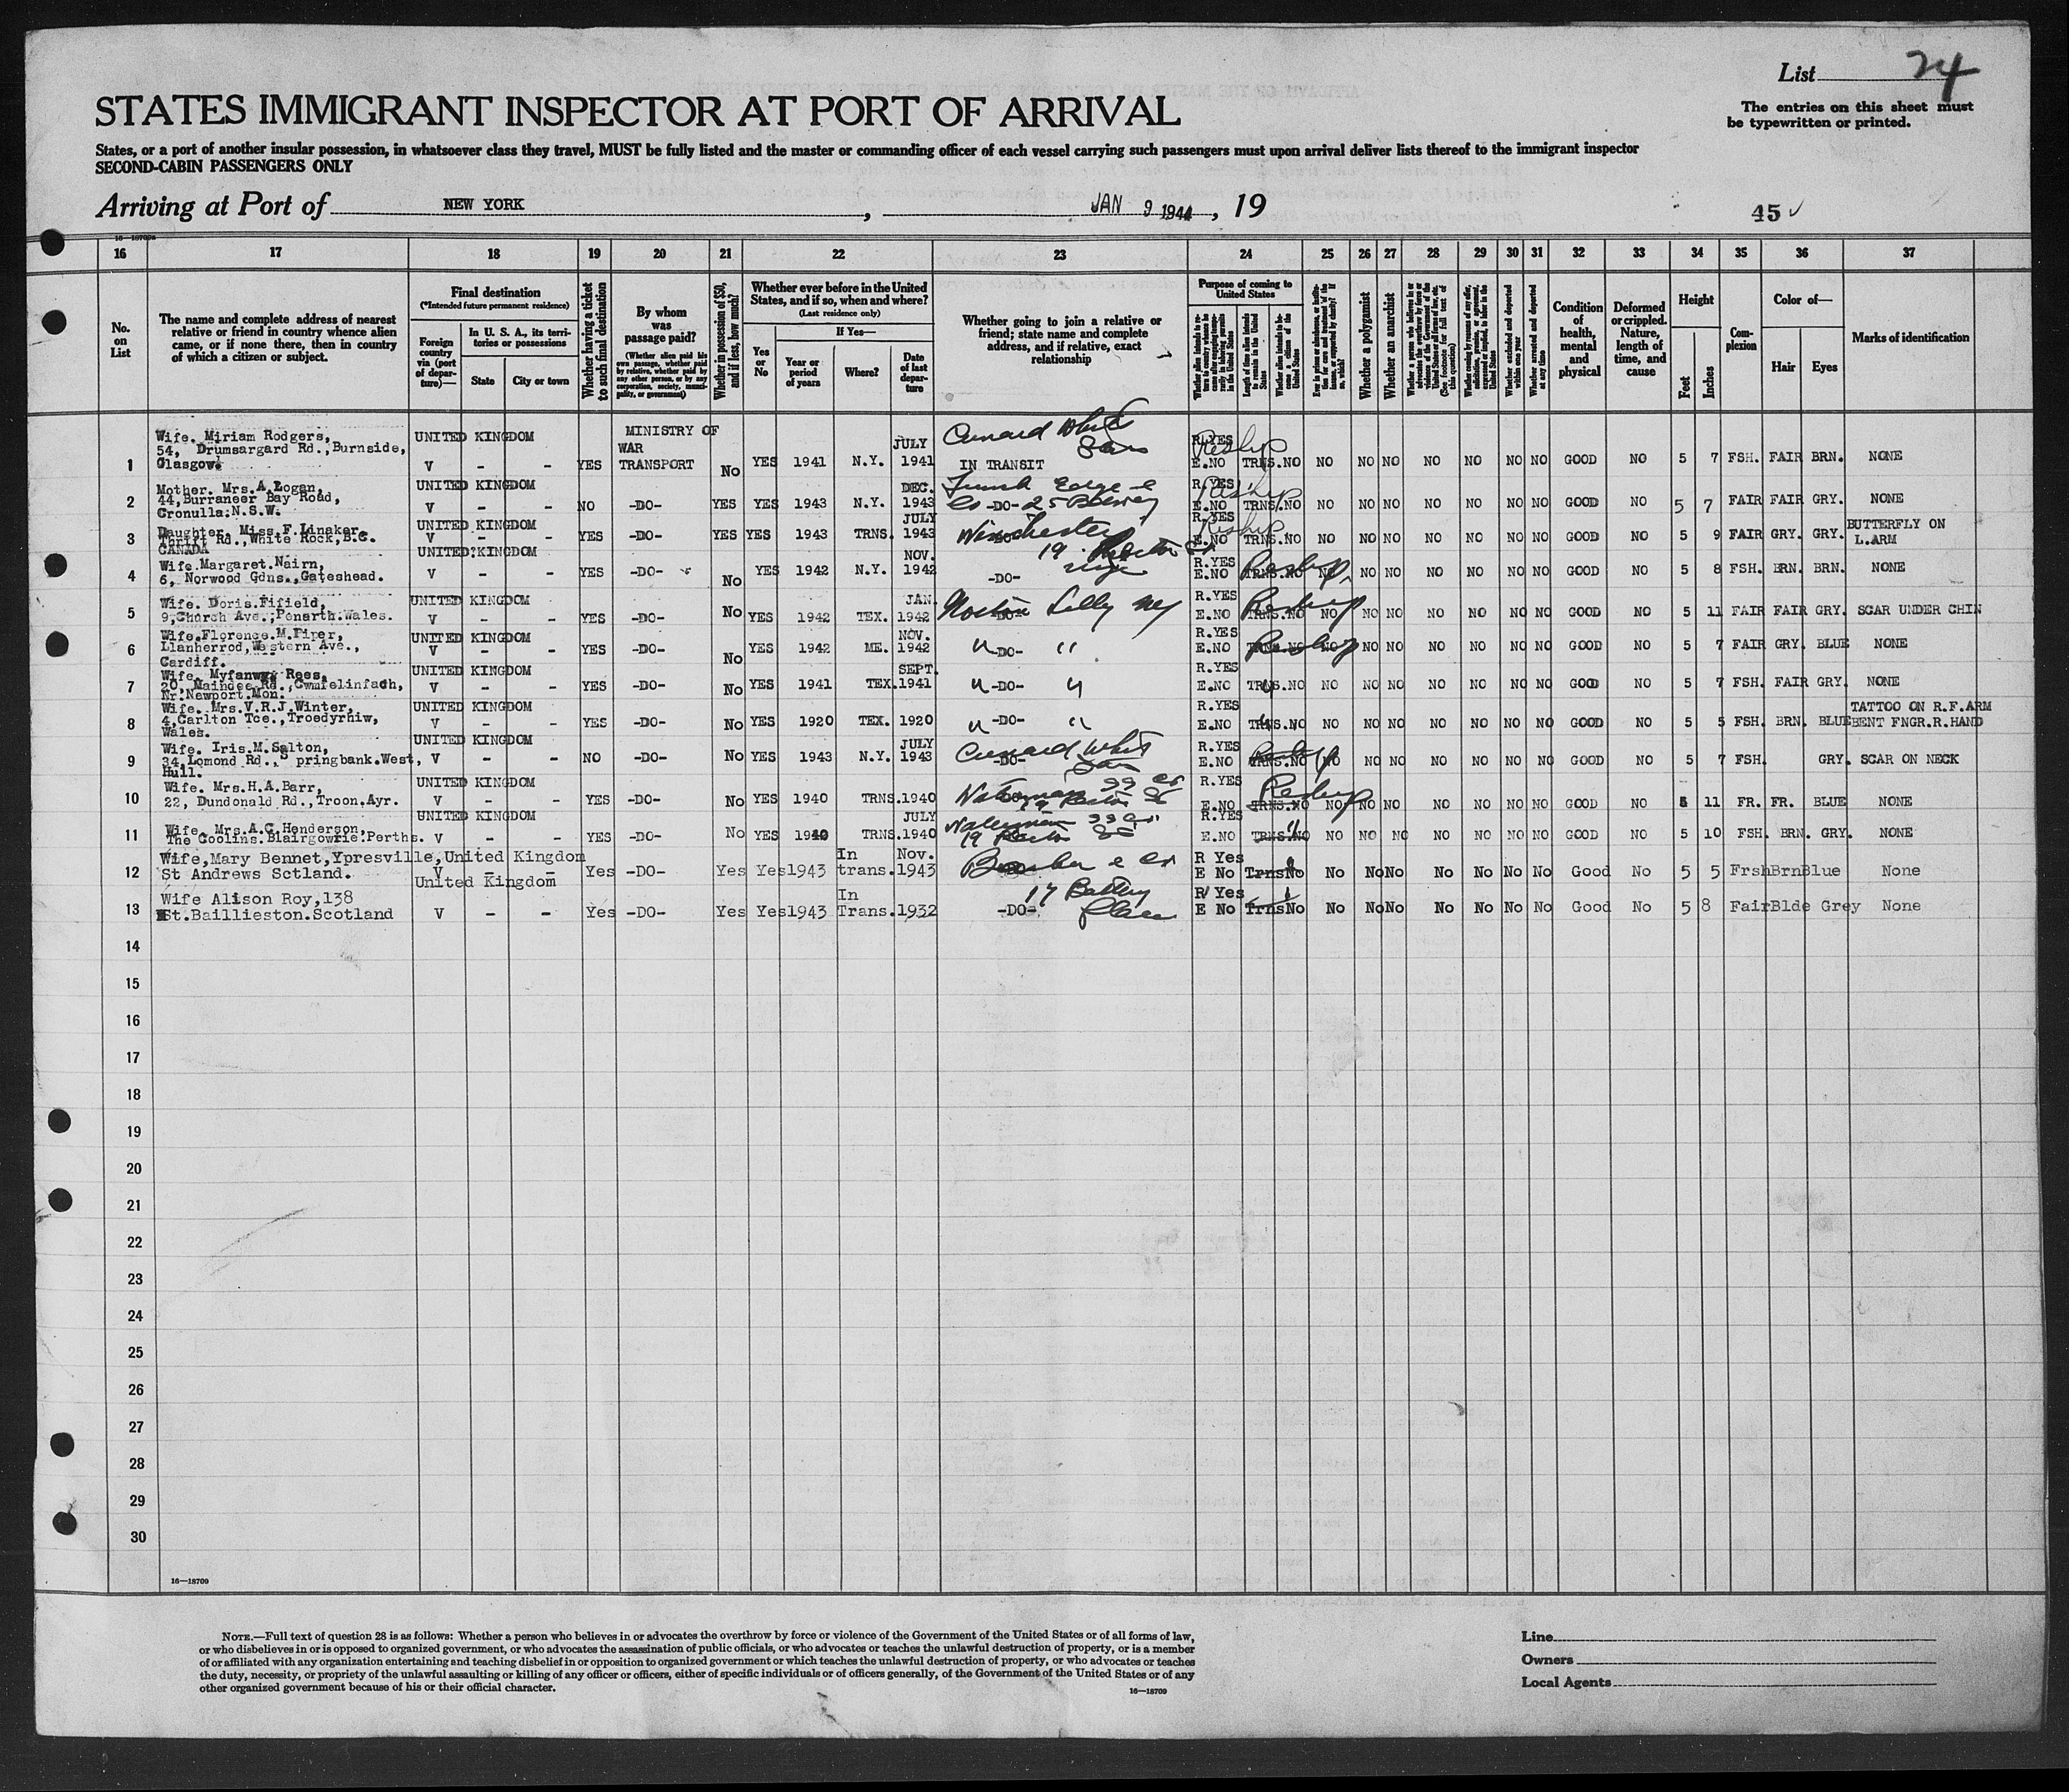 List 24
The entries on this sheet must
be typewritten or printed.
STATES IMMIGRANT INSPECTOR AT PORT OF ARRIVAL
States, or a port of another insular possession, in whatsoever class they travel, MUST be fully listed and the master or commanding officer of each vessel carrying such passengers must upon arrival deliver lists thereof to the immigrant inspector
SECOND-CABIN PASSENGERS ONLY
Arriving at Port of NEW YORK, JAN 9 1944, 19
45 ✓
16 17 18 19 20 21 22 23 24 25 26 27 28 29 30 31 32 33 34 35 36 37
No. on List
The name and complete address of nearest relative or friend in country whence alien came, or if none there, then in country of which a citizen or subject.
Final destination (*Intended future permanent residence)
Foreign country via (port of departure)—
In U. S. A., its territories or possessions
State
City or town
Whether having a ticket to such final destination
By whom was passage paid?
(Whether alien paid his own passage, whether paid by relative, whether paid by any other person, or by any corporation, society, municipality, or government)
Whether in possession of $50, and if less, how much?
Whether ever before in the United States, and if so, when and where?
(Last residence only)
If Yes—
Yes or No
Year or period of years
Where?
Date of last departure
Whether going to join a relative or friend; state name and complete address, and if relative, exact relationship
Purpose of coming to United States
Whether a polygamist
Whether an anarchist
Whether excluded and deported within one year
Whether arrested and deported at any time
Condition of health, mental and physical
Deformed or crippled. Nature, length of time, and cause
Height
Feet
Inches
Complexion
Color of—
Hair
Eyes
Marks of identification
1 Wife. Miriam Rodgers, 54, Drumsargard Rd., Burnside, Glasgow. UNITED KINGDOM V - - YES MINISTRY OF WAR TRANSPORT No YES 1941 N.Y. JULY 1941 Cunard White Star IN TRANSIT R.YES E.NO Reship TRNS. NO NO NO NO NO NO NO NO GOOD NO 5 7 FSH. FAIR BRN. NONE
2 Mother. Mrs.A.Logan, 44, Burraneer Bay Road, Cronulla.N.S.W. UNITED KINGDOM V - - NO -DO- YES YES 1943 N.Y. DEC. 1943 -DO- R.YES E.NO Reship TRNS. NO NO NO NO NO NO NO NO GOOD NO 5 7 FAIR FAIR GRY. NONE
3 Daughter. Miss.F.Linaker, Thrift Rd., White Rock, B.C. CANADA UNITED KINGDOM V - - YES -DO- YES YES 1943 TRNS. JULY 1943 Winchester 19 Rector St R.YES E.NO Reship TRNS. NO NO NO NO NO NO NO NO GOOD NO 5 9 FAIR GRY. GRY. BUTTERFLY ON L.ARM
4 Wife.Margaret.Nairn, 6, Norwood Gdns., Gateshead. UNITED KINGDOM V - - YES -DO- No YES 1942 N.Y. NOV. 1942 -DO- R.YES E.NO Reship TRNS. NO NO NO NO NO NO NO NO GOOD NO 5 8 FSH. BRN. BRN. NONE
5 Wife. Doris.Fifield, 9, Church Ave., Penarth.Wales. UNITED KINGDOM V - - YES -DO- No YES 1942 TEX. JAN. 1942 Norton Lilly NY -DO- R.YES E.NO Reship TRNS. NO NO NO NO NO NO NO NO GOOD NO 5 11 FAIR FAIR GRY. SCAR UNDER CHIN
6 Wife.Florence.M.Piper, Llanherrod, Western Ave., Cardiff. UNITED KINGDOM V - - YES -DO- No YES 1942 ME. NOV. 1942 " -DO- " R.YES E.NO Reship TRNS. NO NO NO NO NO NO NO NO GOOD NO 5 7 FAIR GRY. BLUE NONE
7 Wife. Myfanwy Rees, 20, Maindee Rd., Cwmfelinfach, Nr.Newport.Mon. UNITED KINGDOM V - - YES -DO- No YES 1941 TEX. SEPT. 1941 " -DO- " R.YES E.NO TRNS. NO NO NO NO NO NO NO NO GOOD NO 5 7 FSH. FAIR GRY. NONE
8 Wife. Mrs.V.R.J.Winter, 4, Carlton Tce., Troedyrhiw, Wales. UNITED KINGDOM V - - YES -DO- No YES 1920 TEX. 1920 " -DO- " R.YES E.NO TRNS. NO NO NO NO NO NO NO NO GOOD NO 5 5 FSH. BRN. BLUE TATTOO ON R.F.ARM BENT FNGR.R.HAND
9 Wife. Iris.M.Salton, 34, Lomond Rd., Springbank.West, Hull. UNITED KINGDOM V - - NO -DO- No YES 1943 N.Y. JULY 1943 Cunard White Star -DO- R.YES E.NO Reship TRNS. NO NO NO NO NO NO NO NO GOOD NO 5 7 FSH. GRY. SCAR ON NECK
10 Wife. Mrs.H.A.Barr, 22, Dundonald Rd., Troon.Ayr. UNITED KINGDOM V - - YES -DO- No YES 1940 TRNS. 1940 Waterman SS Co 19 Rector St R.YES E.NO Reship TRNS. NO NO NO NO NO NO NO NO GOOD NO 5 11 FR. FR. BLUE NONE
11 Wife. Mrs.A.C.Henderson, The Coolins.Blairgowrie.Perths. UNITED KINGDOM V - - YES -DO- No YES 1940 TRNS. JULY 1940 Waterman SS Co 19 Rector St R.YES E.NO " TRNS. NO NO NO NO NO NO NO NO GOOD NO 5 10 FSH. BRN. GRY. NONE
12 Wife, Mary Bennet, Ypresville, St Andrews Sctland. United Kingdom V - - Yes -DO- Yes Yes 1943 In trans. Nov. 1943 R Yes E No Trns No No No No No No No No Good No 5 5 Frsh Brn Blue None
13 Wife Alison Roy, 138 St.Baillieston.Scotland United Kingdom V - - Yes -DO- Yes Yes 1943 In Trans. 1932 -DO- 17 Battery Place R Yes E No Trns No No No No No No No No Good No 5 8 Fair Blde Grey None
14
15
16
17
18
19
20
21
22
23
24
25
26
27
28
29
30
16—18709
NOTE.—Full text of question 28 is as follows: Whether a person who believes in or advocates the overthrow by force or violence of the Government of the United States or of all forms of law,
or who disbelieves in or is opposed to organized government, or who advocates the assassination of public officials, or who advocates or teaches the unlawful destruction of property, or is a member
of or affiliated with any organization entertaining and teaching disbelief in or opposition to organized government or which teaches the unlawful destruction of property, or who advocates or teaches
the duty, necessity, or propriety of the unlawful assaulting or killing of any officer or officers, either of specific individuals or of officers generally, of the Government of the United States or of any
other organized government because of his or their official character.
16—18709
Line
Owners
Local Agents